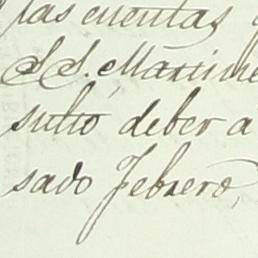 las cuentas
SS. Martine
sultó deber a
sado Febrero,